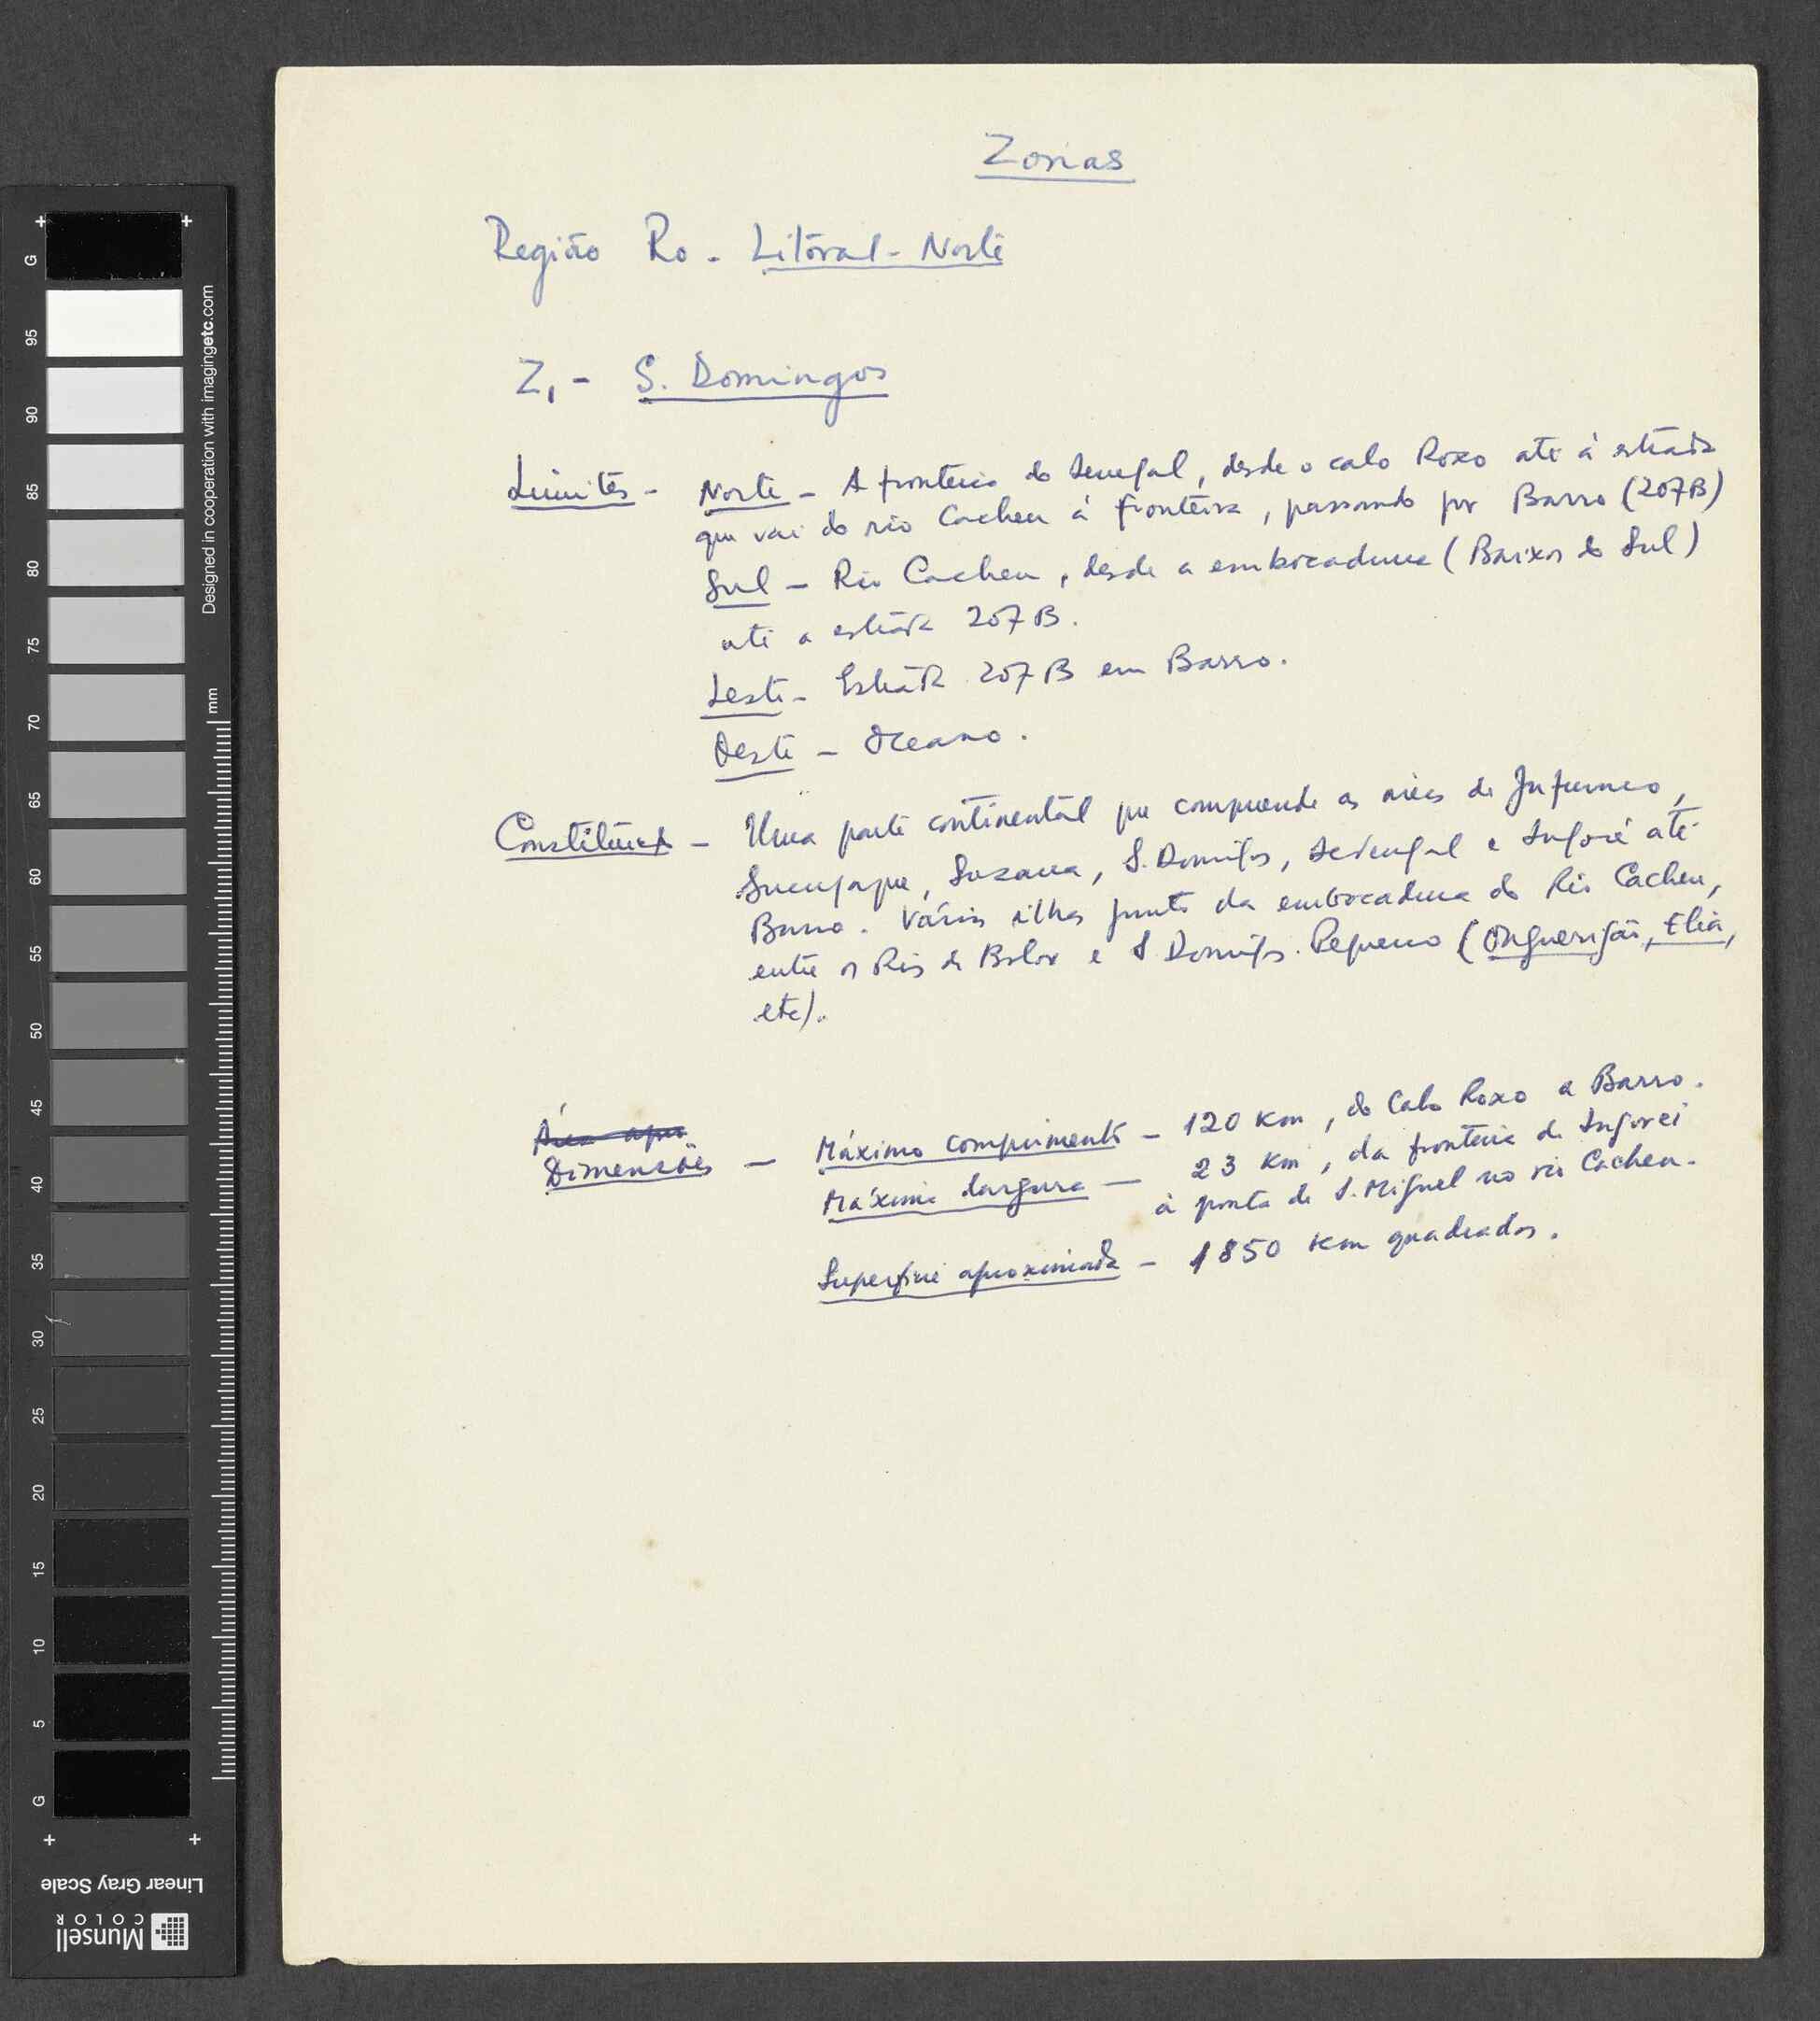 Zonas
Região Ro - Litoral - Norte
Z1 - S. Domingos
Limites - Norte - A fronteira do Senegal, desde o cabo Roxo até à estrada
que vai do rio Cacheu à fronteira, passando por Barro (207B)
Sul - Rio Cacheu, desde a embocadura (Baixos do Sul)
até a estrada 207B.
Leste - Estrada 207B em Barro.
Oeste - Oceano.
Constituição - Uma parte continental que compreende as áreas de
Sucujaque, Suzana, S. Domingos, Sedengal e Ingoré até
Barro. Várias ilhas junto da embocadura do Rio Cacheu,
entre os Rios de Bolor e S Domingos. Pequeno ( Elia,
etc).
Área apro
Dimensões - Máximo comprimento - 120 km, do Cabo Roxo a Barro.
Máxima largura - 23 km, da fronteira de Ingorei
à ponta de S. Miguel no rio Cacheu.
Superfície aproximada - 1850 km quadrados.
G
95
90
85
80
75
70
65
60
55
50
45
40
35
30
25
20
15
10
5
G
Designed in cooperation with imagingetc.com
mm
Linear Gray Scale
Munsell
COLOR